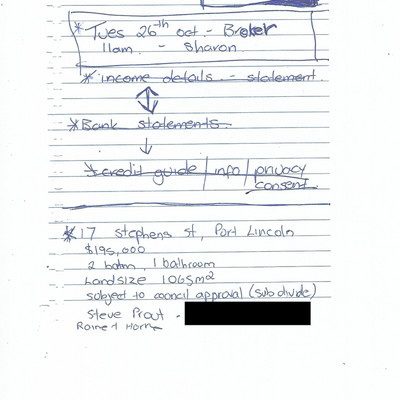 * Tues 26th oct - Broker
11am. - Sharon.
* income details. - statement.
* Bank statements.
* credit guide / info / privacy
consent.
* 17 Stephens St, Port Lincoln
$195,000
2 bdrm, 1 bathroom
Landsize 1065m²
subject to council approval (subdivide)
Steve Prout -